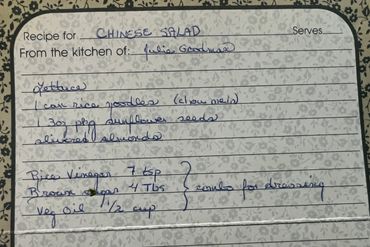 Recipe for CHINESE SALAD Serves
From the kitchen of: Julia Goodman
Lettuce
1 can rice noodles (chow mein)
1 3oz pkg sunflower seeds
slivered almonds
Rice Vinegar 7 tsp
Brown sugar 4 Tbs
combo for dressing
Veg Oil 1/2 cup